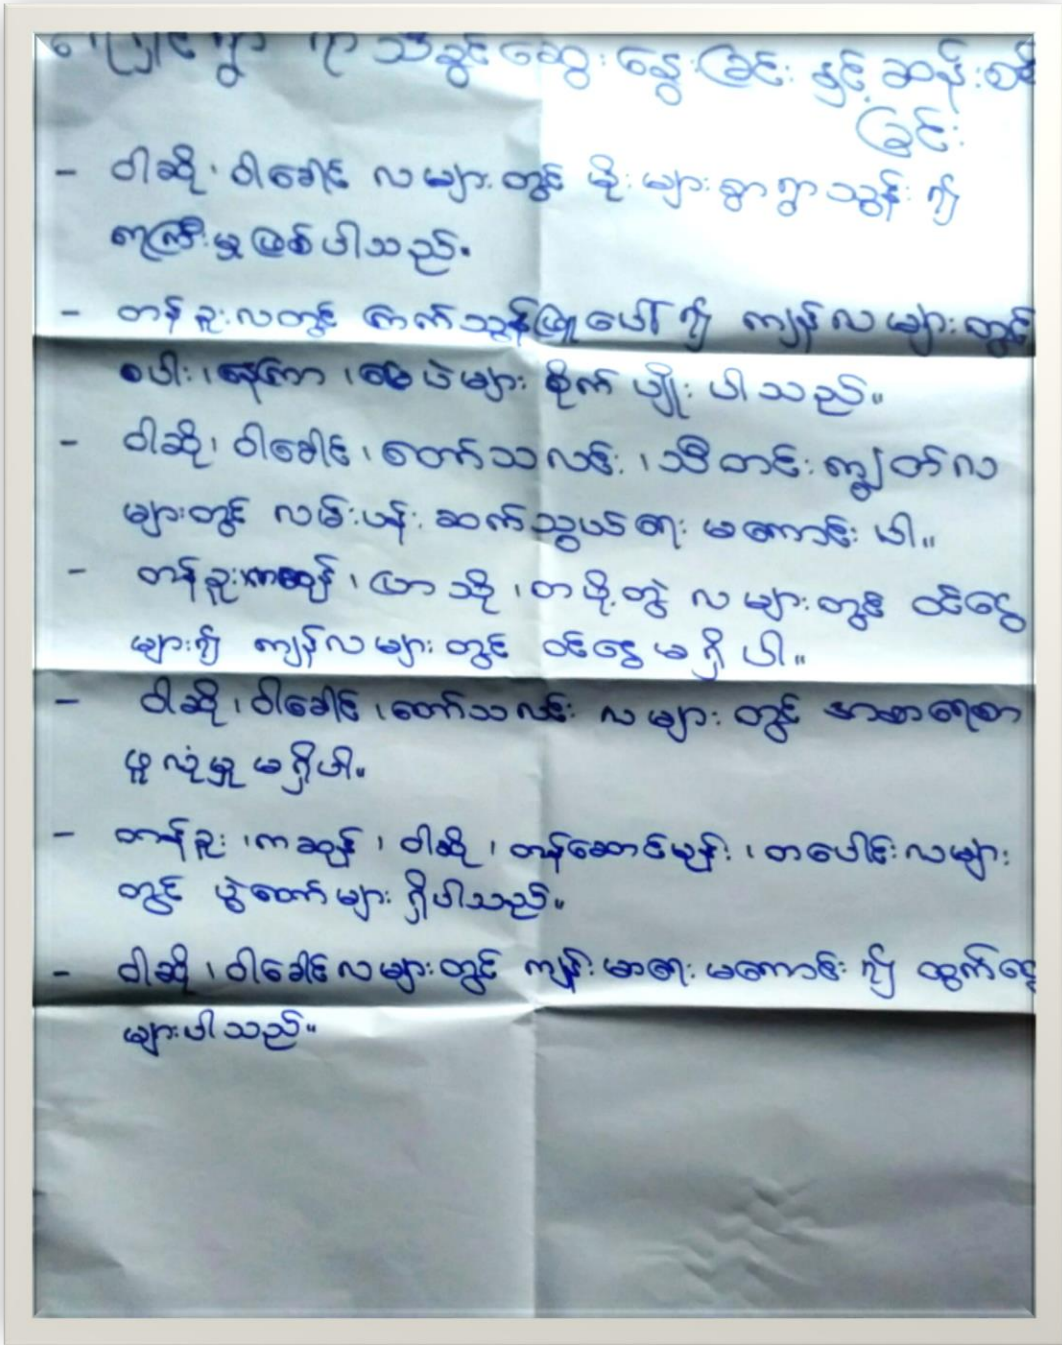 ရာသီခွင်ဆွေးနွေးခြင်း နှင့် ဆန်းစစ်
ခြင်း
- ဝါဆို၊ ဝါခေါင် လများတွင် မိုးများစွာရွာသွန်း၍
ရေကြီးမှုဖြစ်ပါသည်။
- တန်ခူးလတွင် ကြက်သွန်ဖြူပေါ်၍ ကျန်လများတွင်
စပါး၊ နေကြာ၊ မြေပဲများ စိုက်ပျိုးပါသည်။
- ဝါဆို၊ ဝါခေါင်၊ တော်သလင်း၊ သီတင်းကျွတ်လ
များတွင် လမ်းပန်းဆက်သွယ်ရေး မကောင်းပါ။
- တန်ခူး၊ကဆုန်၊ ပြာသို၊ တပို့တွဲ လများတွင် ဝင်ငွေ
များ၍ ကျန်လများတွင် ဝင်ငွေမရှိပါ။
- ဝါဆို၊ ဝါခေါင်၊ တော်သလင်း လများတွင် အစားရေစာ
ဖူလုံမှု မရှိပါ။
- တန်ခူး၊ ကဆုန်၊ ဝါဆို၊ တန်ဆောင်မုန်း၊ တပေါင်းလများ
တွင် ပွဲတော်များ ရှိပါသည်။
- ဝါဆို၊ ဝါခေါင်လများတွင် ကျန်းမာရေး မကောင်း၍ ထွက်ငွေ
များပါသည်။